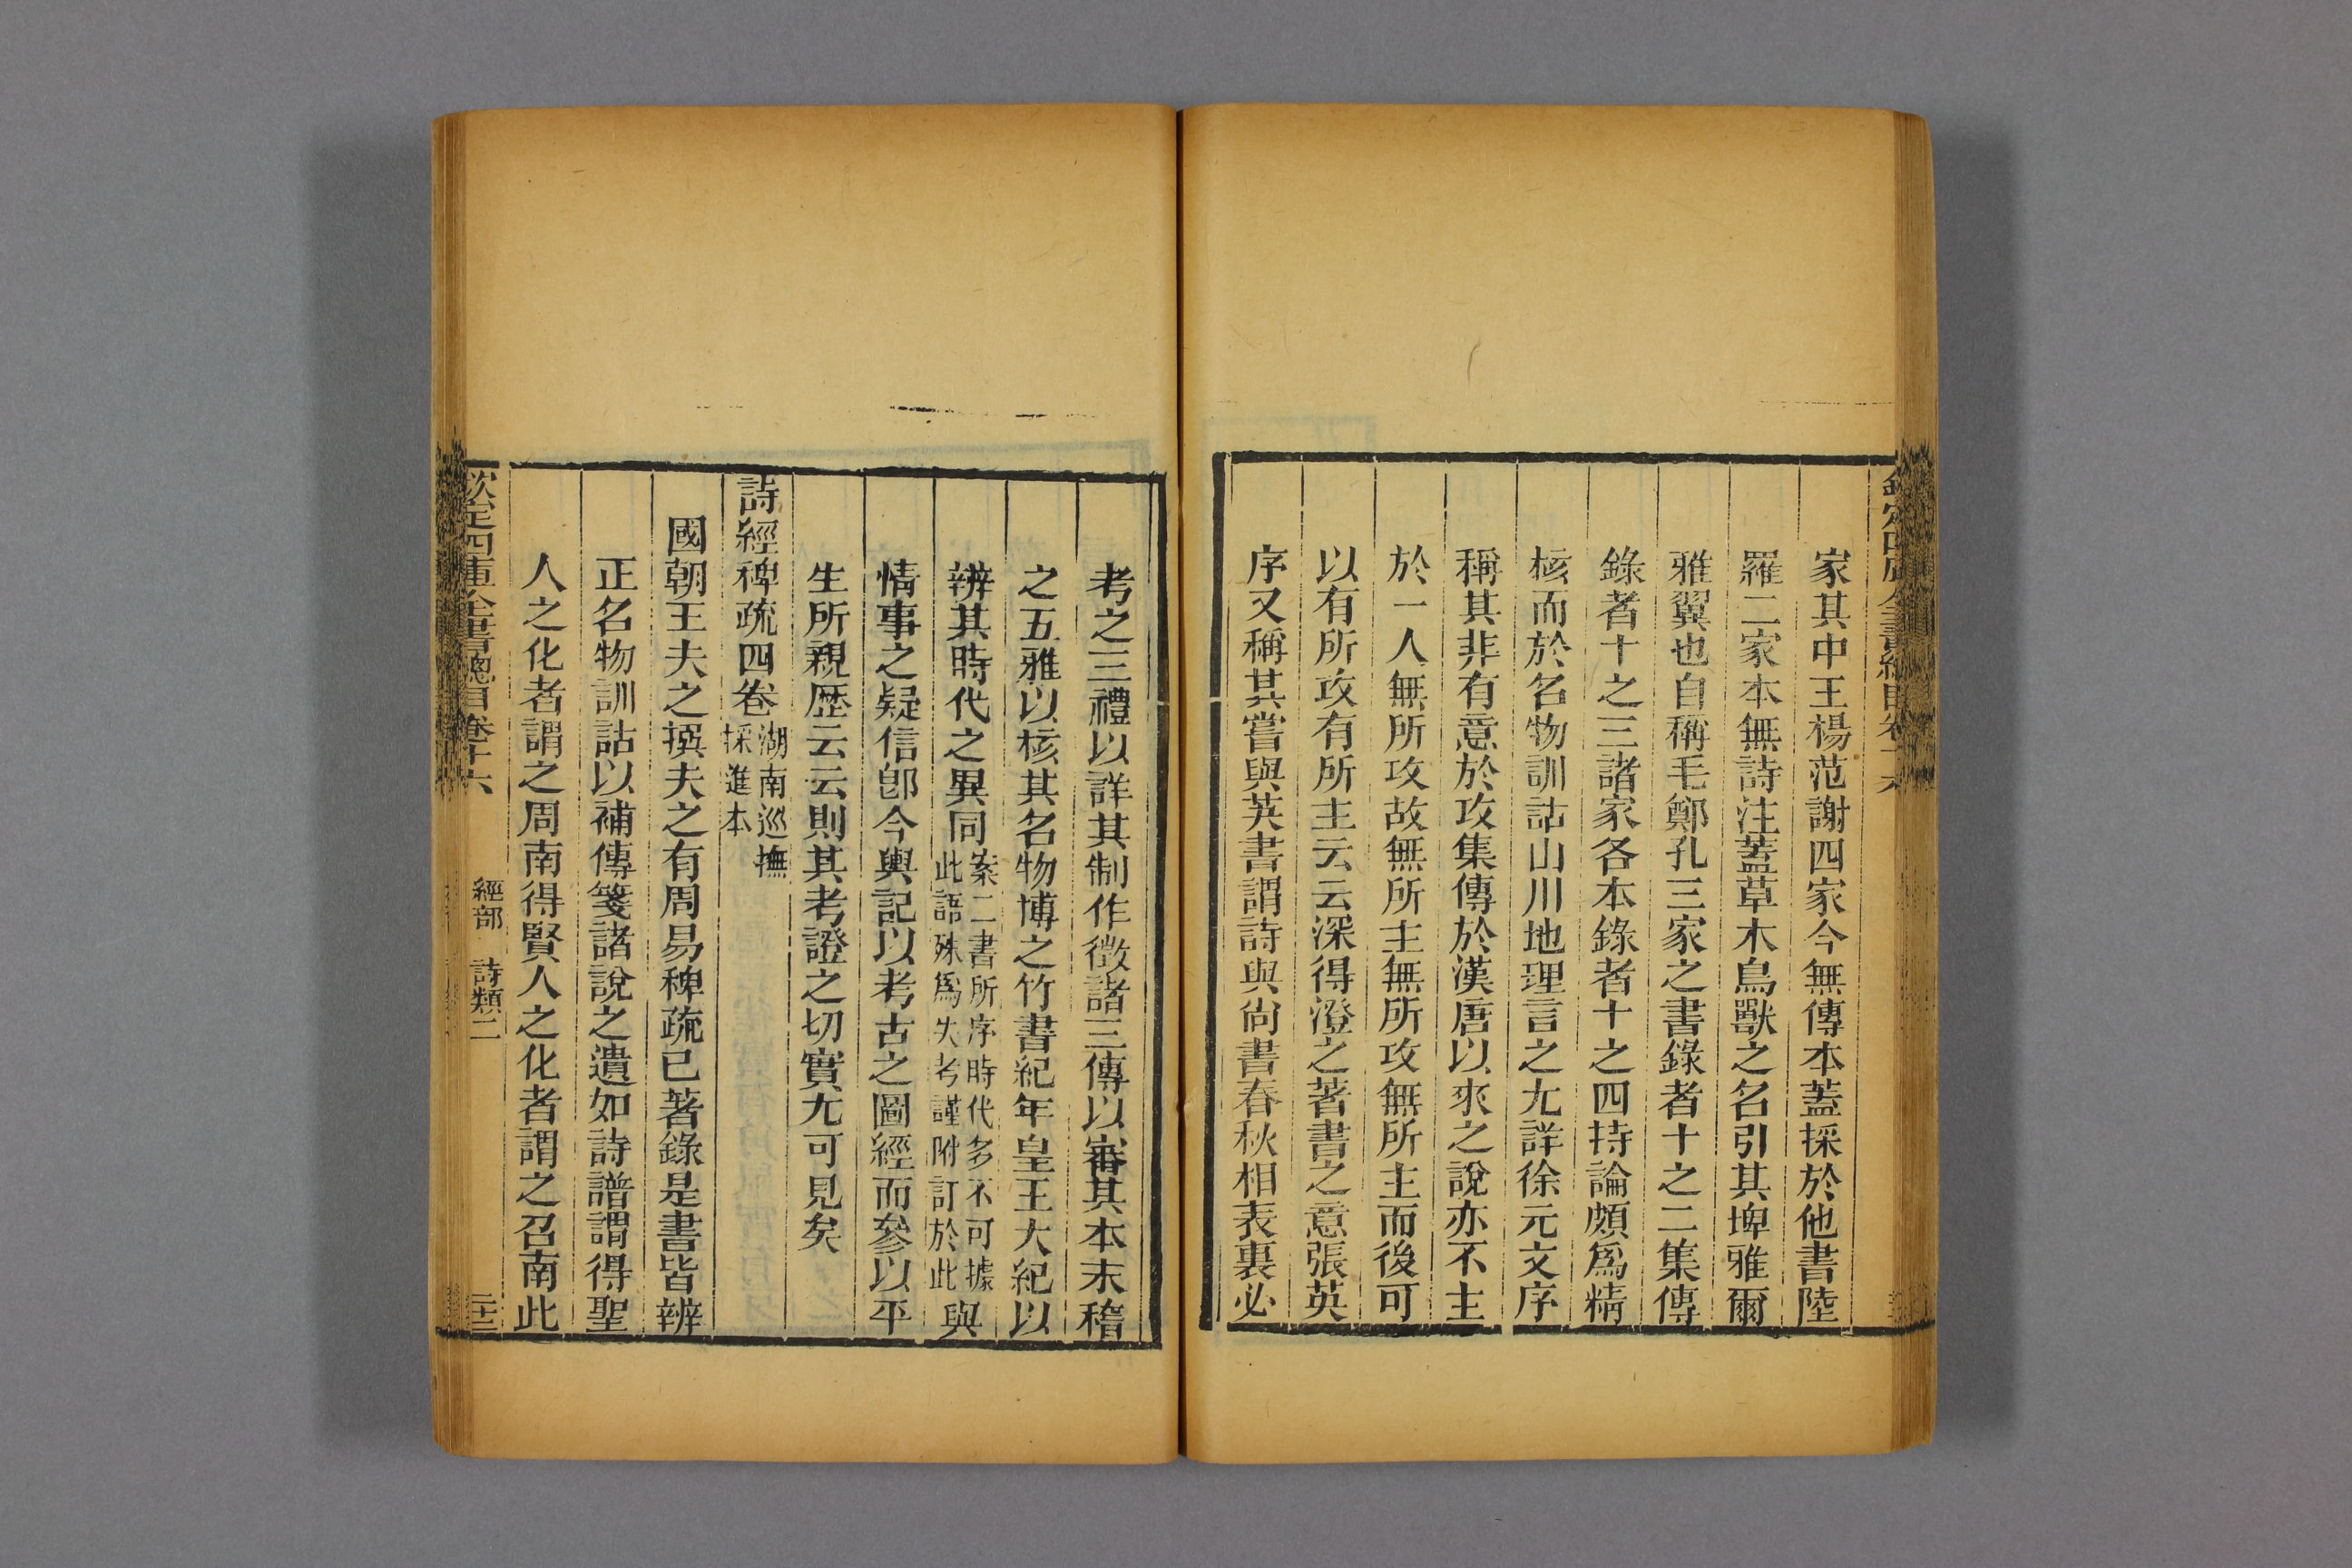 家其中王楊范謝四家今無傳本蓋採於他書陸
羅二家本無詩注蓋草木鳥獸之名引其埤雅爾
雅翼也自稱毛鄭孔三家之書錄者十之二集傳
錄者十之三諸家各本錄者十之四持論頗爲精
核而於名物訓詁山川地理言之尤詳徐元文序
稱其非有意於攻集傳於漢唐以來之說亦不主
於一人無所攻故無所主無所攻無所主而後可
以有所攻有所主云云深得澄之著書之意張英
序又稱其嘗與英書謂詩與尙書春秋相表裏必
考之三禮以詳其制作徵諸三傳以審其本末稽
之五雅以核其名物博之竹書紀年皇王大紀以
辨其時代之異同案二書所序時代多不可據此語殊爲失考謹附訂於此與
情事之疑信卽今輿記以考古之圖經而參以平
生所親歷云云則其考證之切實尤可見矣
詩經稗疏四卷湖南巡撫採進本
國朝王夫之撰夫之有周易稗疏已著錄是書皆辨
正名物訓詁以補傳箋諸說之遺如詩譜謂得聖
人之化者謂之周南得賢人之化者謂之召南此
欽定四庫全書總目卷十六 經部 詩類二